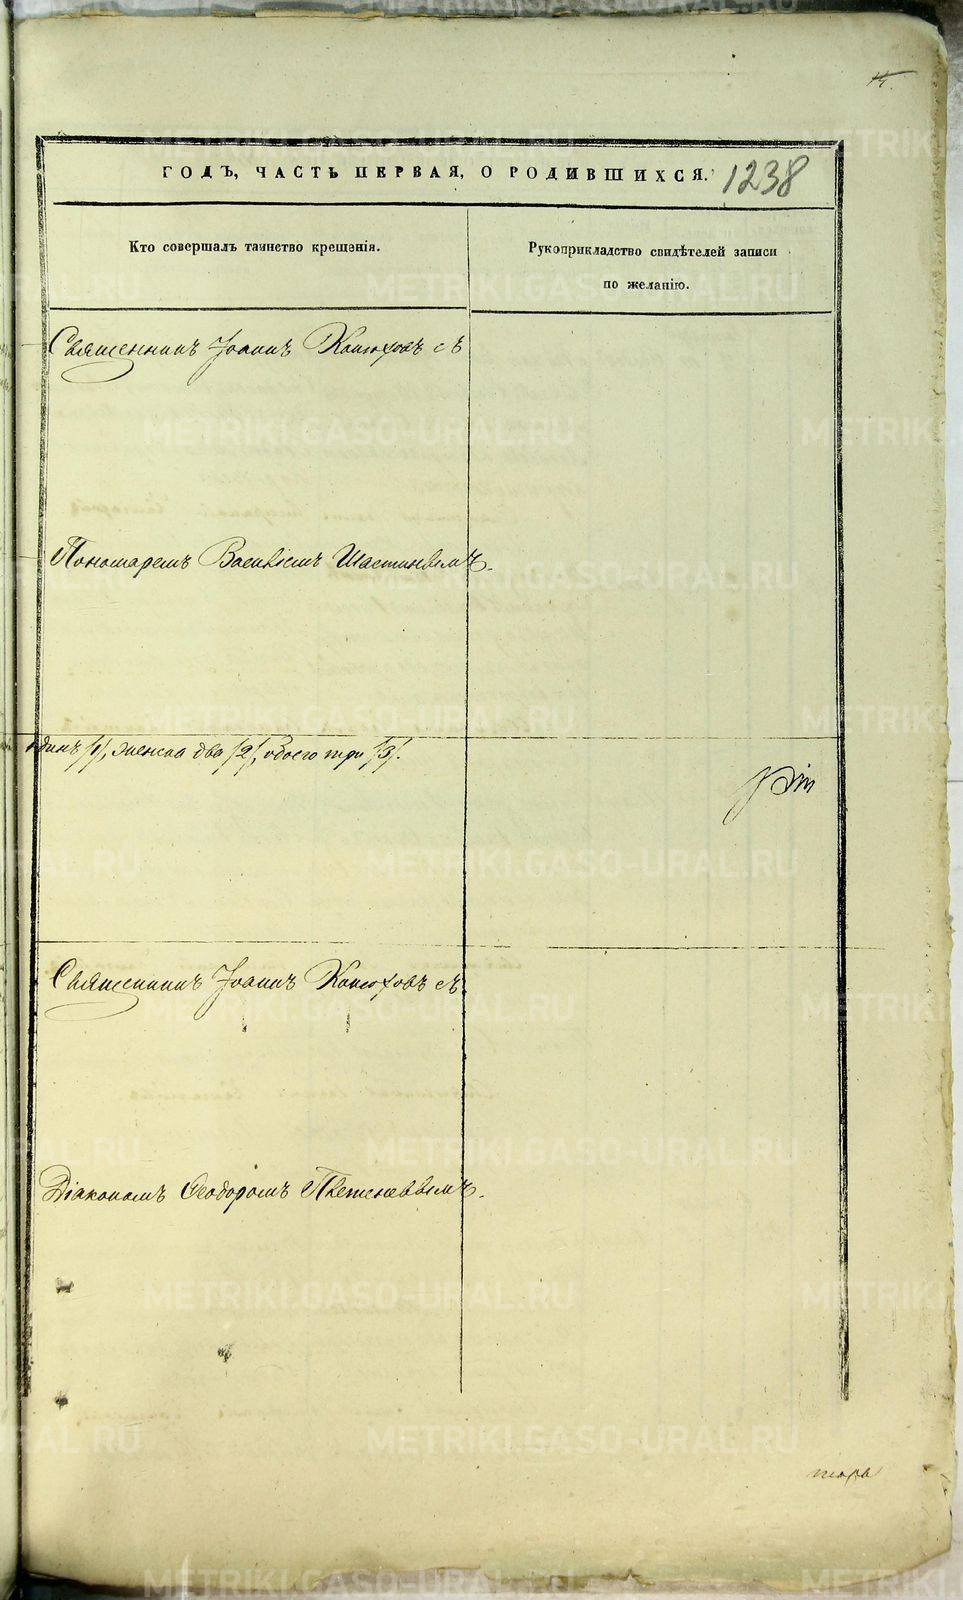 ГОДЪ, ЧАСТЬ ПЕРВАЯ, О РОДИВШИХСЯ. 1238
Кто совершалъ таинство крещенія.
Рукоприкладство свидѣтелей записи
по желанію.
Священникъ Іоаннъ Конюховъ съ
Пономаремъ Василіемъ Шастинымъ.
одинъ /1/, женска два /2/, обоего три /3/.
Священникъ Іоаннъ Конюховъ съ
Діакономъ Ѳеодоромъ
METRIKI.GASO-URAL.RU